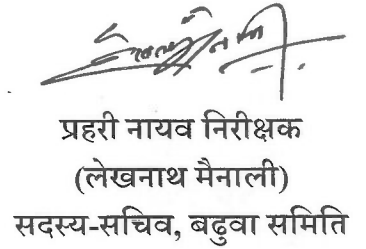 प्रहरी नायव निरीक्षक
(लेखनाथ मैनाली)
सदस्य-सचिव, बढुवा समिति